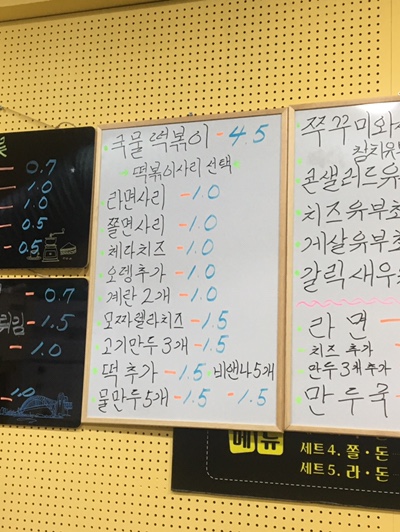 0.7
1.0
1.0
0.5
0.5
0.7
1.5
1.0
1.0
국물떡볶이 - 4.5
떡볶이사리 선택
라면사리 - 1.0
쫄면사리 - 1.0
체다치즈 - 1.0
오뎅추가 - 1.0
계란 2개 - 1.0
모짜렐라치즈 - 1.5
고기만두 3개 - 1.5
떡 추가 - 1.5 비엔나5개
물만두5개 - 1.5 - 1.5
쭈꾸미와사
참치유부
콘샐러드유
치즈유부초
게살유부초
갈릭새우
라면 -
치즈 추가
만두 3개 추가
만두국
메뉴
세트4. 쫄·돈
세트5. 라·돈